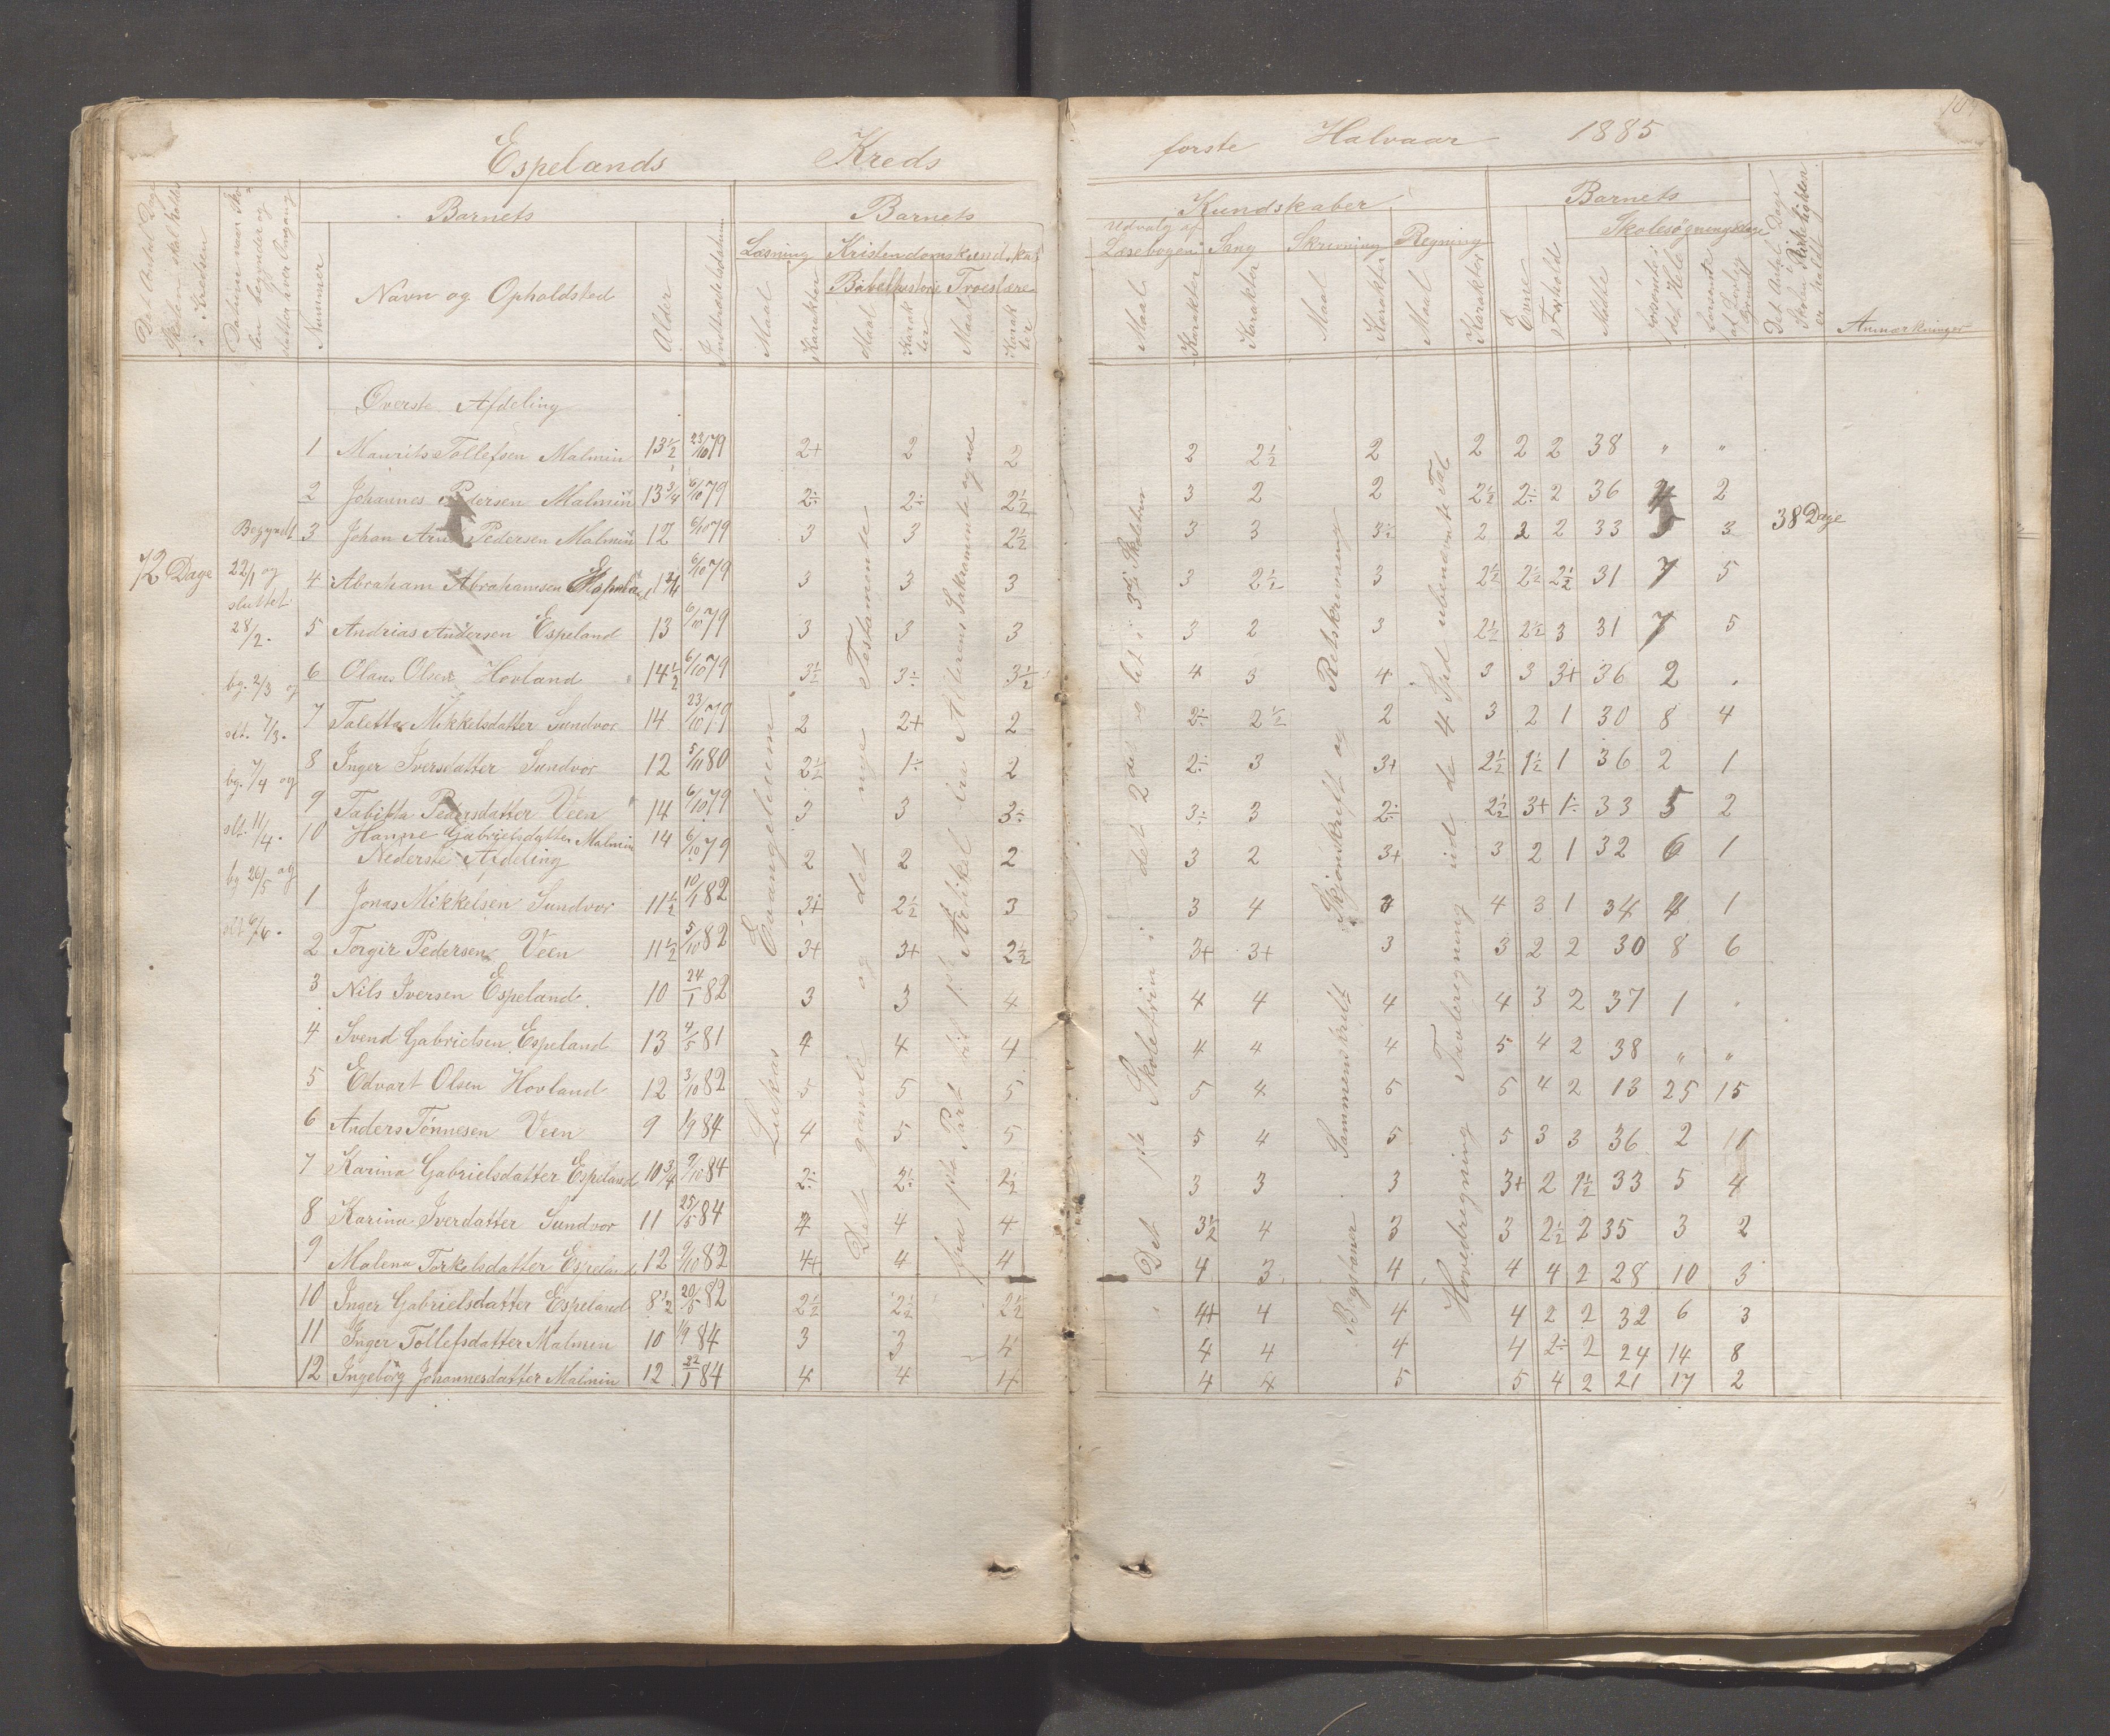 Espelands Kreds første Halvaar 1885
Det Antal Dage Skolen skal holdes i Kredsen
Datum naar Skolen begynder og slutter hver Omgang
Barnets
Nummer
Navn og Opholdsted
Alder
Indtrædelsesdatum
Barnets
Kundskaber
Læsning
Maal
Karakter
Kristendomskundskab
Bibelhistorie
Maal
Karakter
Troeslære
Maal
Karakter
Udvalg af Læsebogen
Maal
Karakter
Sang
Karakter
Skrivning
Maal
Karakter
Regning
Maal
Karakter
Barnets
Evne
Forhold
Skolesøgningsdage
Mødte
Forsømte i det Hele
Forsømte af lovlig Grund
Det Antal Dage Skolen i Virkeligheden er holdt
Anmærkninger
72 Dage
Begyndt
22/1 og
sluttet
28/2.
bg. 2/3 og
slt. 7/3.
bg. 7/4 og
slt. 11/4.
bg 26/5 og
slt 6/6.
Øverste Afdeling
1 Maurits Tollefsen Malmin 13 1/2 23/10 79 2+ 2 2 2 2 1/2 2 2 2 2 38 " "
2 Johannes Pedersen Malmin 13 3/4 6/10 79 2÷ 2÷ 2 1/2 3 2 2 2 1/2 2÷ 2 36 4 2
3 Johan Arne Pedersen Malmin 12 6/10 79 3 3 2 1/2 3 3 3÷ 2 2 2 33 5 3 38 Dage
4 Abraham Abrahamsen Espeland 6/10 79 3 3 3 3 2 1/2 3 2 1/2 2 1/2 2 1/2 31 7 5
5 Andrias Andersen Espeland 13 6/10 79 3 3 3 3 2 3 2 1/2 2 1/2 3 31 7 5
6 Olaus Olsen Hovland 14 1/2 6/10 79 3 1/2 3÷ 3 1/2 4 3 4 3 3 3+ 36 2 .
7 Taletta Mikkelsdatter Sundvor 14 23/10 79 2 2+ 2 2÷ 2 1/2 2 3 2 1 30 8 4
8 Inger Iversdatter Sundvor 12 5/11 80 2 1/2 1÷ 2 2÷ 3 3+ 2 1/2 1 1/2 1 36 2 1
9 Tabitta Pedersdatter Veen 14 6/10 79 3 3 3÷ 3÷ 3 2÷ 2 1/2 3+ 1÷ 33 5 2
10 Hanne Gabrielsdatter Malmin 14 6/10 79 2 2 2 3 2 3+ 3 2 1 32 6 1
Nederste Afdeling
1 Jonas Mikkelsen Sundvor 11 1/2 10/1 82 3+ 2 1/2 3 3 4 3 4 3 1 34 4 1
2 Torgir Pedersen Veen 11 1/2 5/10 82 3+ 3+ 2 1/2 3+ 3+ 3 3 2 2 30 8 6
3 Nils Iversen Espeland. 10 24/1 82 3 3 4 4 4 4 4 3 2 37 1 "
4 Svend Gabrielsen Espeland 13 4/5 81 4 4 4 4 4 4 5 4 2 38 " "
5 Edvart Olsen Hovland 12 3/10 82 5 5 5 5 4 5 5 4 2 13 25 15
6 Anders Tønnesen Veen 9 1/9 84 4 5 5 5 4 5 5 3 3 36 2 11
7 Karina Gabrielsdatter Espeland 10 3/4 9/10 84 2÷ 2÷ 2 1/2 3 3 3 3+ 2 1 1/2 33 5 4
8 Karina Iverdatter Sundvor 11 25/5 84 4 4 4 3 1/2 4 3 3 2 1/2 2 35 3 2
9 Malena Torkelsdatter Espeland 12 9/10 82 4+ 4 4 4 3 4 4 4 2 28 10 3
10 Inger Gabrielsdatter Espeland 8 1/2 20/5 82 2 1/2 2 1/2 2 1/2 4+ 4 4 4 2 2 32 6 3
11 Inger Tollefsdatter Malmen 10 1/9 84 3 3 4 4 4 4 4 2÷ 2 24 14 8
12 Ingeborg Johannesdatter Malmin 12 22/1 84 4 4 4 4 4 5 5 4 2 21 17 2
Lukas Evangelieum
Det gamle og det nye Testamente
fra 3die Part til 1ste Artikel
Alterens Sakramente
Det 1ste Skoletrin i det 2det og lidt i 3die Skoletrin
Bogstaver Sammenskrift Skjønskrift og Retskrivning
Hovedregning Tavleregning